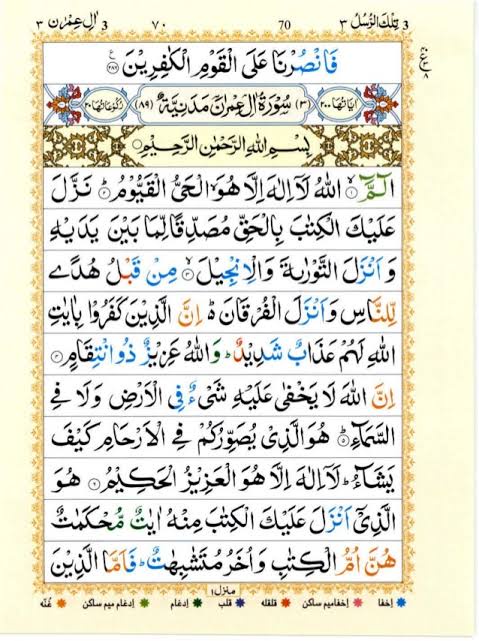 تِلْكَ الرُّسُلُ ٣ 3 70 ٧٠ 3 اٰلِ عِمْرٰن ٣
فَانْصُرْنَا عَلَى الْقَوْمِ الْكٰفِرِیْنَ ۟
اٰیَاتُهَا ٢٠٠ (٣) سُوْرَةُ اٰلِ عِمْرٰنَ مَدَنِیَّةٌ (٨٩) رُكُوْعَاتُهَا ٢٠
بِسْمِ اللّٰهِ الرَّحْمٰنِ الرَّحِیْمِ
الٓمَّٓ ۙ﴿١﴾ اللّٰهُ لَاۤ اِلٰهَ اِلَّا هُوَ ۙ الْحَیُّ الْقَیُّوْمُ ؕ﴿٢﴾ نَزَّلَ
عَلَیْكَ الْكِتٰبَ بِالْحَقِّ مُصَدِّقًا لِّمَا بَیْنَ یَدَیْهِ
وَ اَنْزَلَ التَّوْرٰىةَ وَ الْاِنْجِیْلَ ۙ﴿٣﴾ مِنْ قَبْلُ هُدًی
لِّلنَّاسِ وَ اَنْزَلَ الْفُرْقَانَ ؕ۬ اِنَّ الَّذِیْنَ كَفَرُوْا بِاٰیٰتِ
اللّٰهِ لَهُمْ عَذَابٌ شَدِیْدٌ ؕ وَ اللّٰهُ عَزِیْزٌ ذُو انْتِقَامٍ ؕ﴿٤﴾
اِنَّ اللّٰهَ لَا یَخْفٰی عَلَیْهِ شَیْءٌ فِی الْاَرْضِ وَ لَا فِی
السَّمَآءِ ؕ﴿٥﴾ هُوَ الَّذِیْ یُصَوِّرُكُمْ فِی الْاَرْحَامِ كَیْفَ
یَشَآءُ ؕ لَاۤ اِلٰهَ اِلَّا هُوَ الْعَزِیْزُ الْحَكِیْمُ ﴿٦﴾ هُوَ
الَّذِیْۤ اَنْزَلَ عَلَیْكَ الْكِتٰبَ مِنْهُ اٰیٰتٌ مُّحْكَمٰتٌ
هُنَّ اُمُّ الْكِتٰبِ وَ اُخَرُ مُتَشٰبِهٰتٌ ؕ فَاَمَّا الَّذِیْنَ
منزل ١
اخفا اخفامیم ساکن قلقله قلب ادغام ادغام میم ساکن غنّه